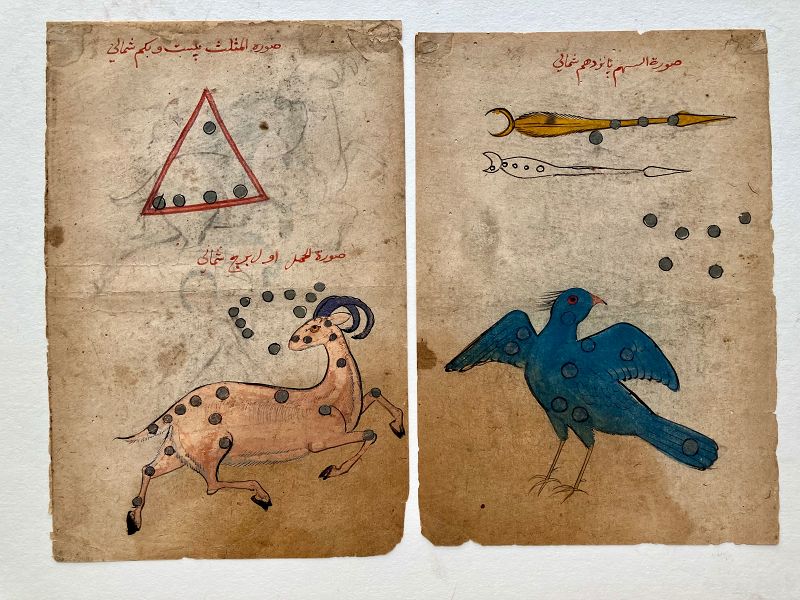 صورة المثلث بیست و یکم شمالي
صورة الحمل اول برج شمالي
صورة السهم پانزدهم شمالي